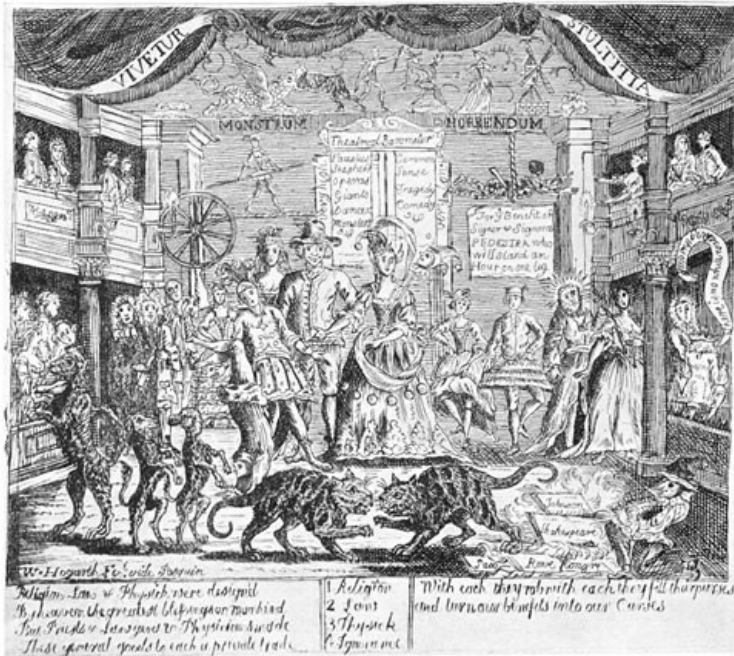 VIVETUR STULTITIA
MONSTRUM HORRENDUM
Theatrical Barometer
Operas
Giants
Dances
Monsters
Common
Sense
Tragedy
Comedy
For ye Benefit of
Signor & Signora
PEDESTRA who
will stand an
Hour on one leg
Shakespear
Rowe Congre
Wm. Hogarth Fec. vide Pasquin
Religion Law & Physick were designd
By heaven the greatest blessings on mankind
But Priests & Lawyers & Physicians made
These general goods to each a private trade
1 Religion
2 Laws
3 Physick
Ignorance
With each they rob with each they fill their purses
and turn our benefits into our Curses